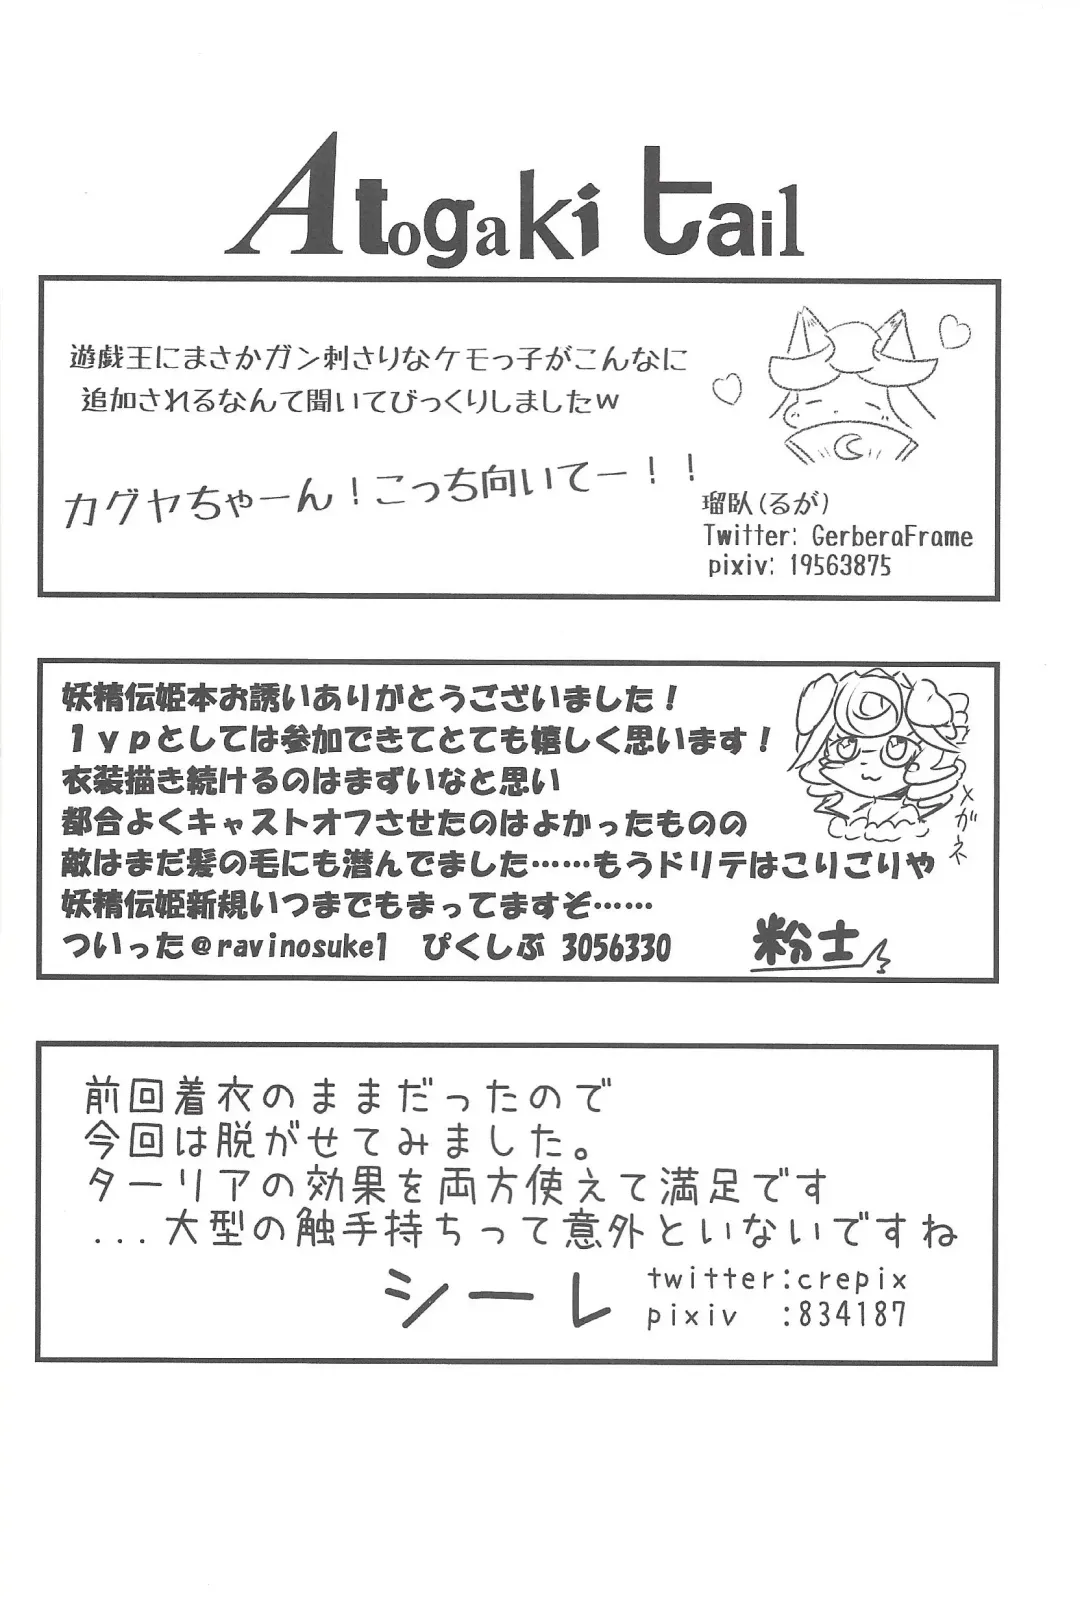 Atogaki tail
遊戯王にまさかガン刺さりなケモっ子がこんなに
追加されるなんて聞いてびっくりしましたw
カグヤちゃーん!こっち向いてー!!
瑠臥(るが)
Twitter: GerberaFrame
pixiv: 19563875
妖精伝姫本お誘いありがとうございました!
1ypとしては参加できてとても嬉しく思います!
衣装描き続けるのはまずいなと思い
都合よくキャストオフさせたのはよかったものの
敵はまだ髪の毛にも潜んでました……もうドリテはこりごりや
妖精伝姫新規いつまでもまってますぞ……
ついった@ravinosuke1 ぴくしぶ 3056330
粉士
メガネ
前回着衣のままだったので
今回は脱がせてみました。
ターリアの効果を両方使えて満足です
...大型の触手持ちって意外といないですね
シーレ
twitter:crepix
pixiv :834187